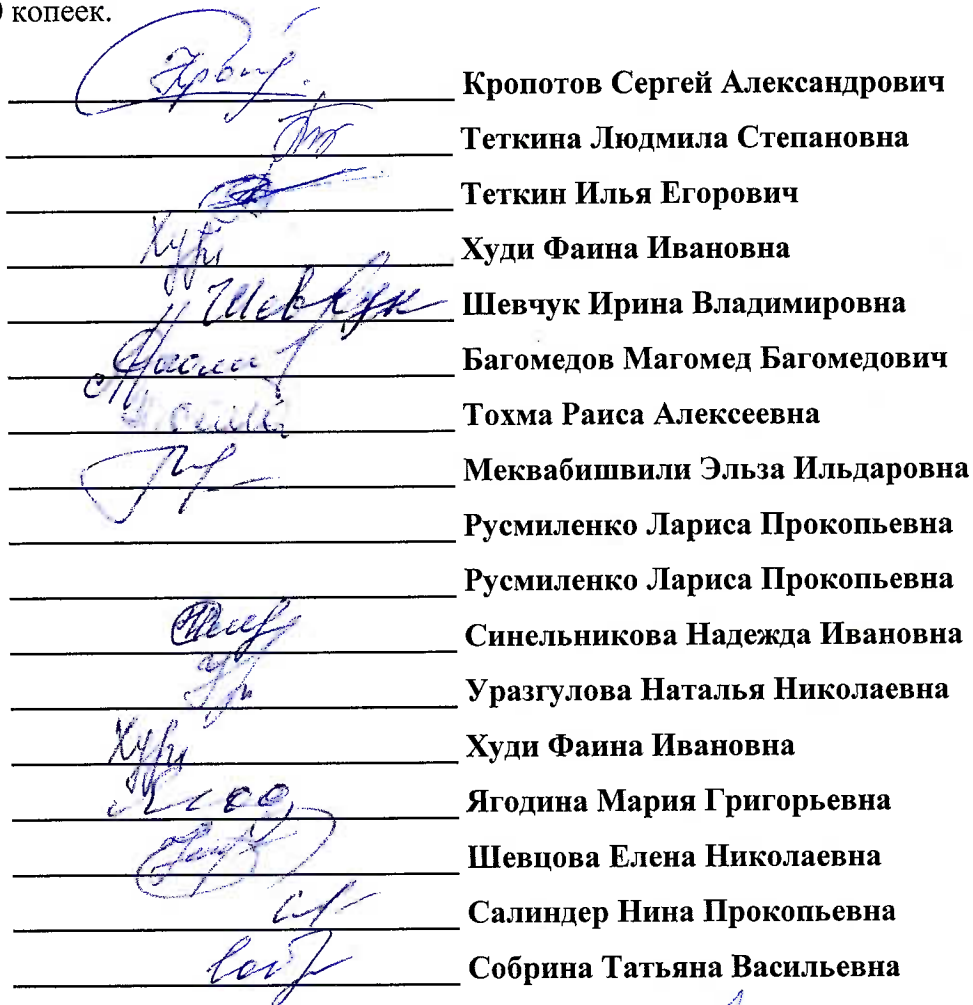 копеек.
Кропотов Сергей Александрович
Теткина Людмила Степановна
Теткин Илья Егорович
Худи Худи Фаина Ивановна
Шевчук Шевчук Ирина Владимировна
Багомедов Магомед Багомедович
Тохма Раиса Алексеевна
Меквабишвили Эльза Ильдаровна
Русмиленко Лариса Прокопьевна
Русмиленко Лариса Прокопьевна
Синельникова Надежда Ивановна
Уразгулова Наталья Николаевна
Худи Худи Фаина Ивановна
Ягодина Мария Григорьевна
Шевцова Елена Николаевна
Салиндер Нина Прокопьевна
Собрина Татьяна Васильевна